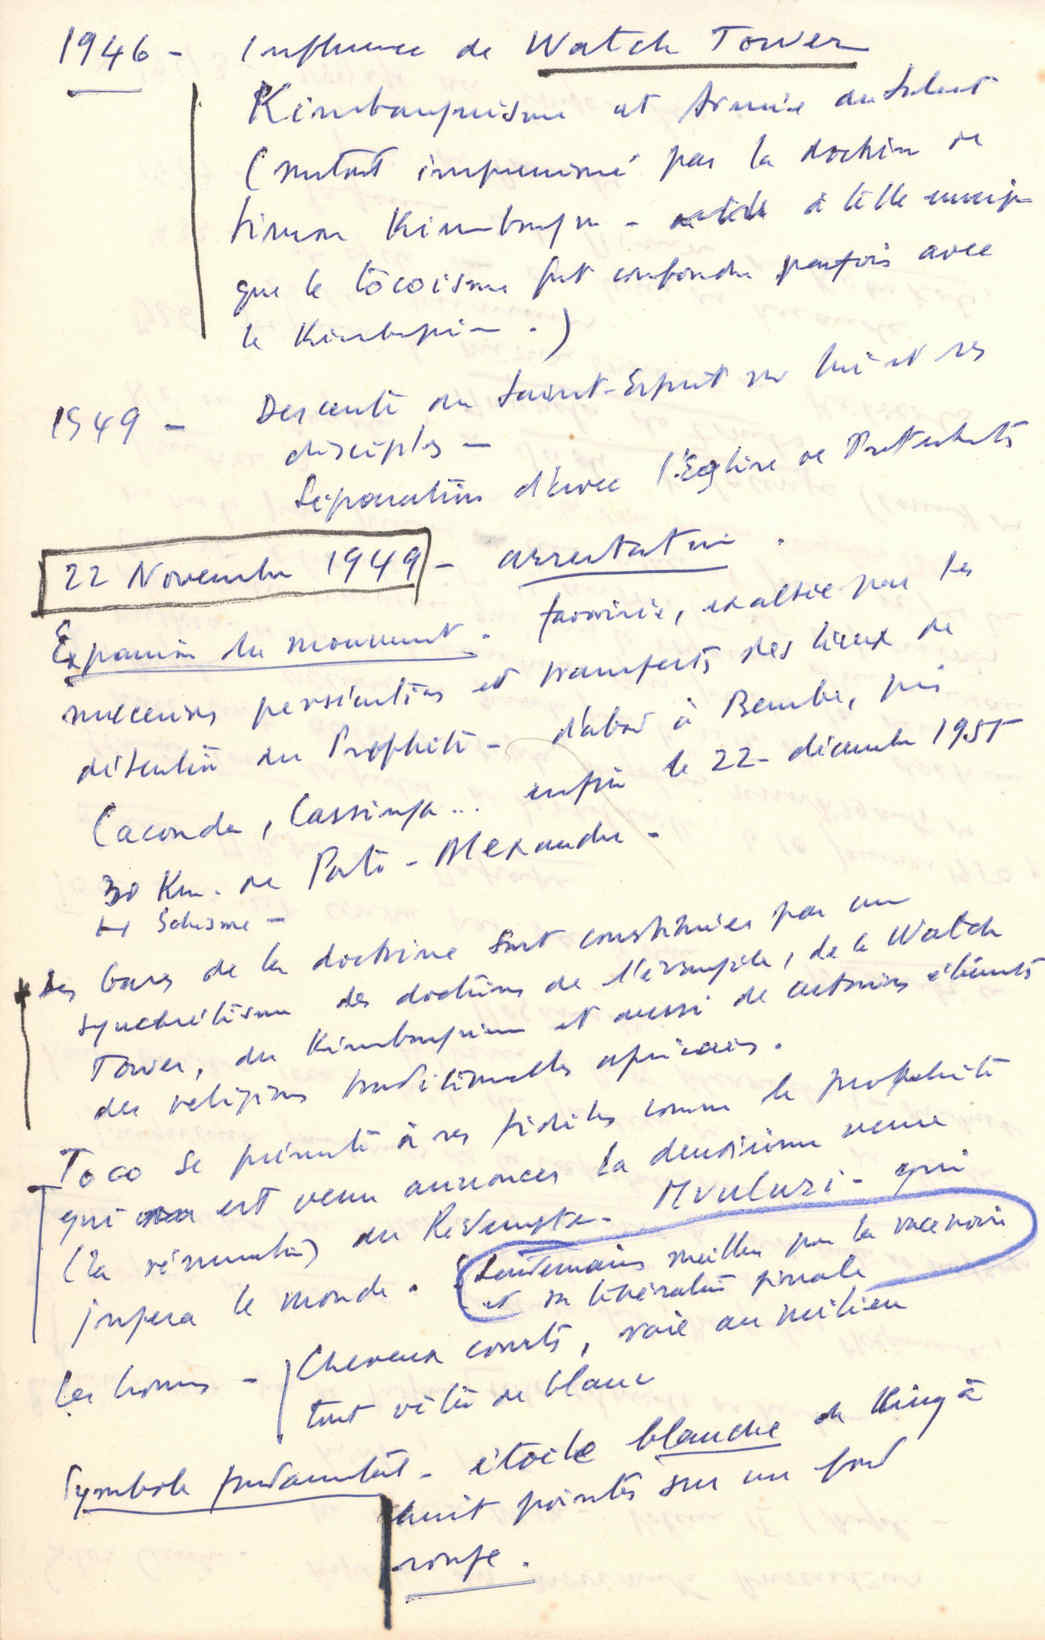 1946 - Influence de Watch Tower
Kimbanguisme et Armée du Salut
(surtout impressionné par la doctrine de
Simon Kimbangu - à telle enseigne
que le tocoisme fut confondu parfois avec
le Kimbangui .)
1949 - Descente du Saint-Esprit sur lui et ses
disciples -
Séparation d'avec l'Eglise de Protestants
22 Novembre 1949 - arrestation .
Expansion du mouvement - favorisée, exaltée par les
successives persécutions et transferts des lieux de
détention du Prophète - d'abord à Bembe, puis
Caconda, Cassinga... enfin le 22 - décembre 1955
30 Km. de Porto-Alexandre -
↦ Schisme -
Les bases de la doctrine sont constituées par un
synchrétisme des doctrines de l'évangile, de la Watch
Tower, du Kimbanguisme et aussi de certains éléments
des religions traditionnelles africaines.
Toco se présente à ses fidèles comme le prophète
qui est venu annoncer la deuxième venue
(la résurrection) du Rédempteur - Mvuluzi - qui
jugera le monde . Lendemains meilleurs pour la race noire
et sa libération finale
Les hommes - Cheveux courts, raie au milieu
tout vêtu de blanc
Symbole fondamental - étoile blanche de
huit pointes sur un fond
rouge .